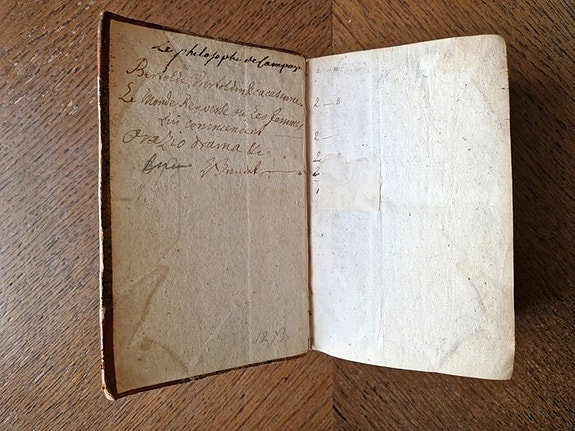 Le philosophe de Campag
Bertolde, Bertoldin & cacasenne,
Le Monde Renversé ou les femmes
qui commandent
Orazio drama di
1273
2
2
2
1